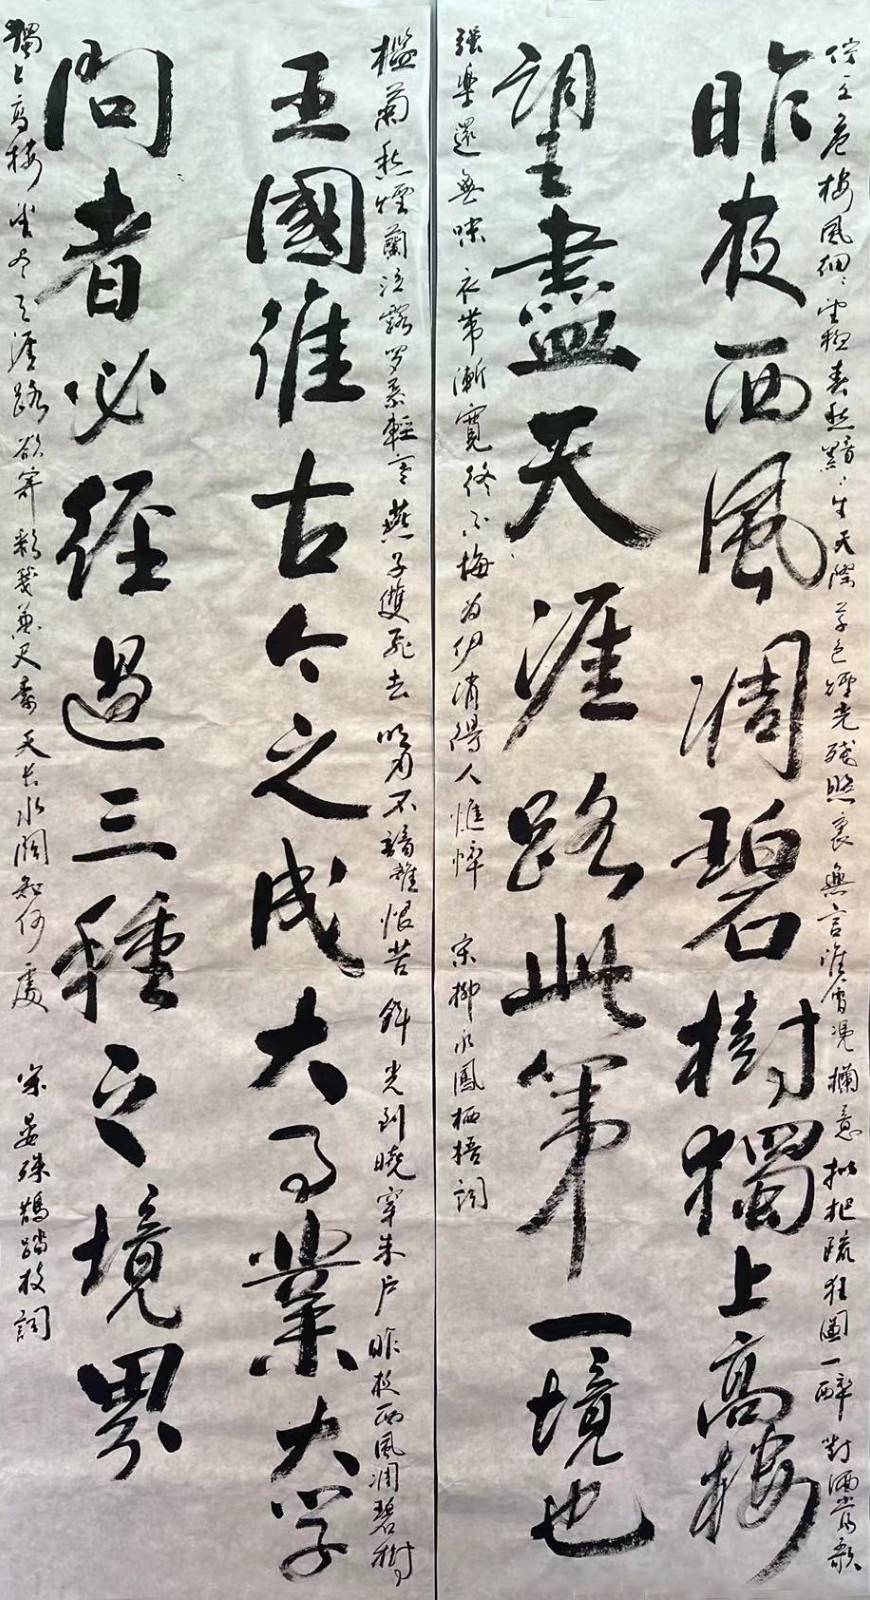 佇立危樓風細〻望極春愁黯〻生天際草色煙光殘照裏無言誰會憑欄意拟把疏狂圖一醉對酒當歌
昨夜西風凋碧樹獨上高樓
望盡天涯路此第一境也
強樂還無味衣帶漸寬終不悔為伊消得人憔悴 宋柳永鳳栖梧詞
檻菊愁煙蘭泣露羅幕輕寒燕子雙飛去明月不諳離恨苦斜光到曉穿朱戶昨夜西風凋碧樹
王國維古今之成大事業大学
問者必經過三種之境界
獨上高樓望盡天涯路欲寄彩箋兼尺素天長水闊知何處 宋晏殊鵲踏枝詞